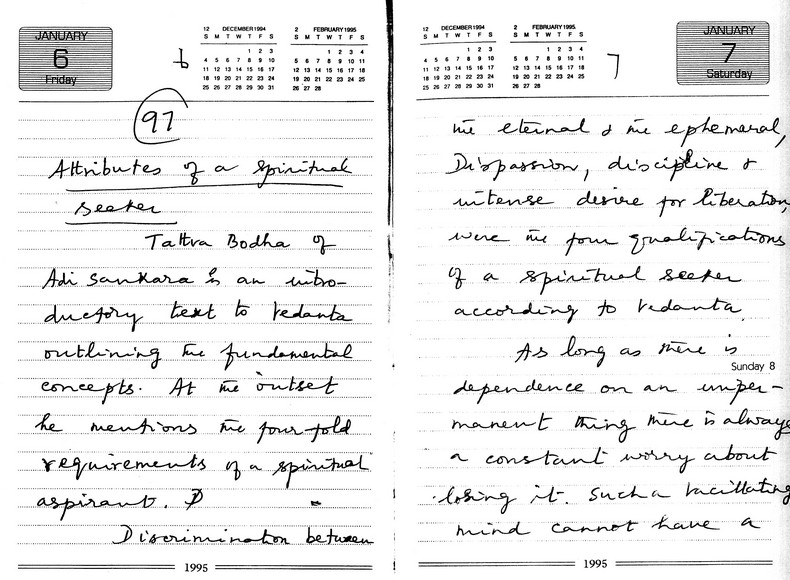 JANUARY
6
Friday
12 DECEMBER 1994
S M T W T F S
1 2 3
4 5 6 7 8 9 10
11 12 13 14 15 16 17
18 19 20 21 22 23 24
25 26 27 28 29 30 31
2 FEBRUARY 1995
S M T W T F S
1 2 3 4
5 6 7 8 9 10 11
12 13 14 15 16 17 18
19 20 21 22 23 24 25
26 27 28
6
97
Attributes of a spiritual
seeker
Tattva Bodha of
Adi Sankara is an intro-
ductory text to Vedanta
outlining the fundamental
concepts. At the outset
he mentions the four-fold
requirements of a spiritual
aspirant.
Discrimination between
1995
12 DECEMBER 1994
S M T W T F S
1 2 3
4 5 6 7 8 9 10
11 12 13 14 15 16 17
18 19 20 21 22 23 24
25 26 27 28 29 30 31
2 FEBRUARY 1995
S M T W T F S
1 2 3 4
5 6 7 8 9 10 11
12 13 14 15 16 17 18
19 20 21 22 23 24 25
26 27 28
7
JANUARY
7
Saturday
the eternal & the ephemeral,
Dispassion, discipline &
intense desire for liberation,
were the four qualifications
of a spiritual seeker
according to Vedanta.
As long as there is
Sunday 8
dependence on an imper-
manent thing there is always
a constant worry about
losing it. Such a vacillating
mind cannot have a
1995